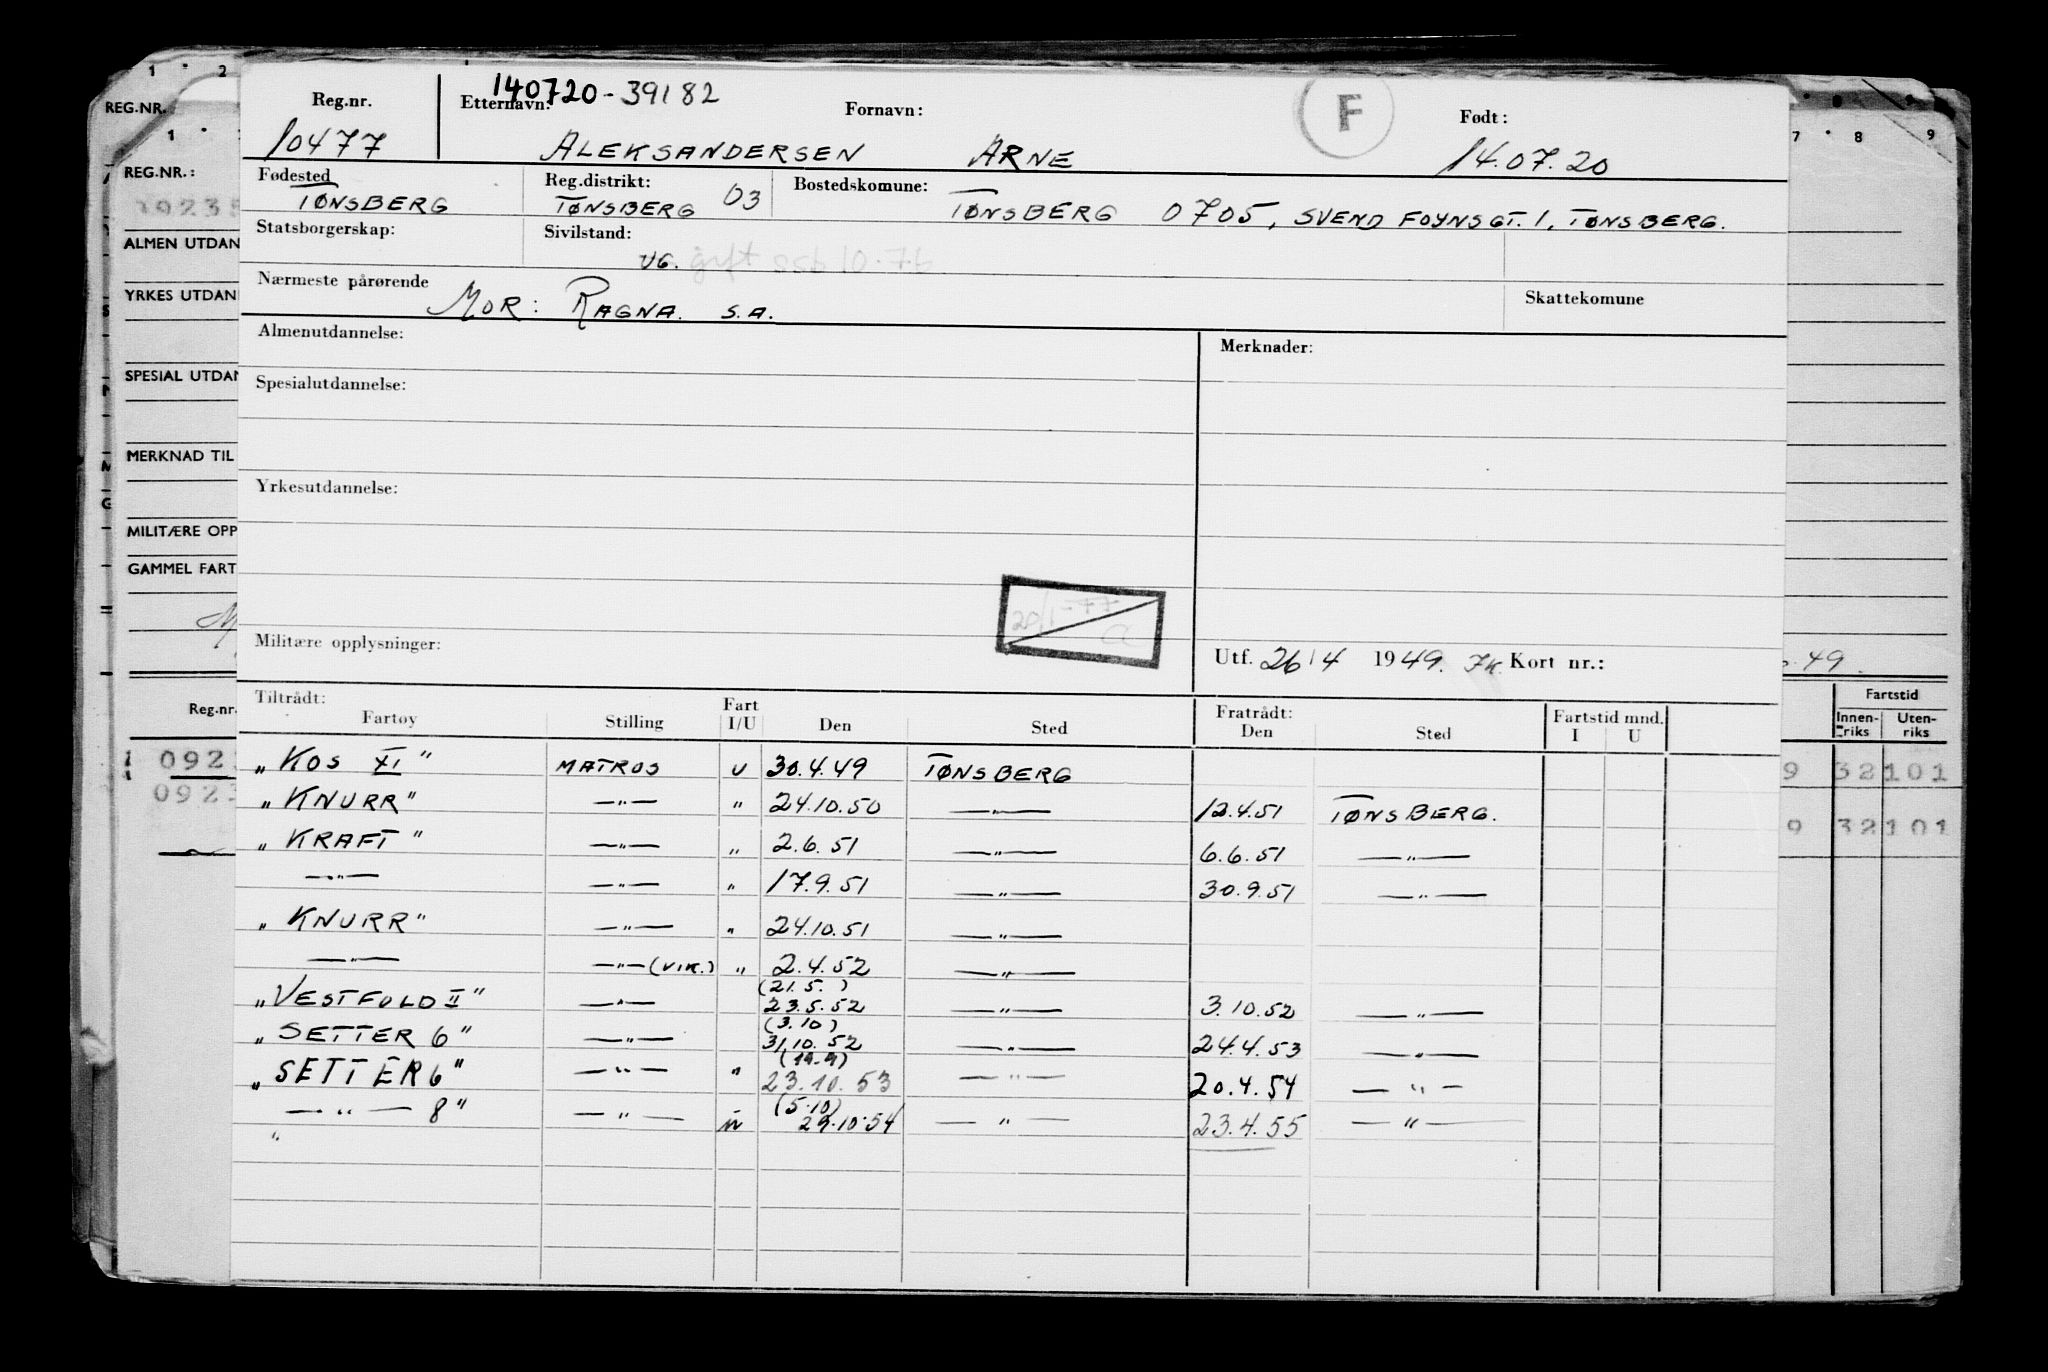 1 2 8 9
REG.NR. 140720-39182 F
1 7 8 9
Reg.nr. Etternavn: Fornavn: Født:
10477 ALEKSANDERSEN ARNE 14.07.20
REG.NR.: Fødested Reg.distrikt: Bostedskomune:
TØNSBERG TØNSBERG 03 TØNSBERG 0705, SVEND FOYNSGT. 1, TØNSBERG.
ALMEN UTDAN Statsborgerskap: Sivilstand:
UG. gift ssb 10.76
YRKES UTDAN Nærmeste pårørende Skattekomune
MOR: RAGNA. S.A.
Almenutdannelse: Merknader:
SPESIAL UTDAN Spesialutdannelse:
MERKNAD TIL
Yrkesutdannelse:
MILITÆRE OPP
GAMMEL FART
20/1-77
Militære opplysninger: Utf. 26/4 1949. Kort nr.: 49.
Tiltrådt: Fratrådt: Fartstid mnd. Fartstid
Reg.nr. Fartøy Stilling Fart I/U Den Sted Den Sted I U Innen-riks Uten-riks
"KOS XI" MATROS U 30.4.49 TØNSBERG 9 32 101
"KNURR" —"— " 24.10.50 —"— 12.4.51 TØNSBERG.
"KRAFT" —"— " 2.6.51 —"— 6.6.51 —"— 9 32 101
—"— —"— " 17.9.51 —"— 30.9.51 —"—
"KNURR" —"— " 24.10.51 —"—
—"— —"—(VIK.) " 2.4.52 —"—
(21.5. )
"VESTFOLD II" —"— 23.5.52 —"— 3.10.52 —"—
(3.10)
"SETTER 6" —"— 31.10.52 —"— 24.4.53 —"—
(19.9)
"SETTER 6" —"— " 23.10.53 —"— 20.4.54 —"—
(5.10)
—"— 8" —"— " 29.10.54 —"— 23.4.55 —"—
"